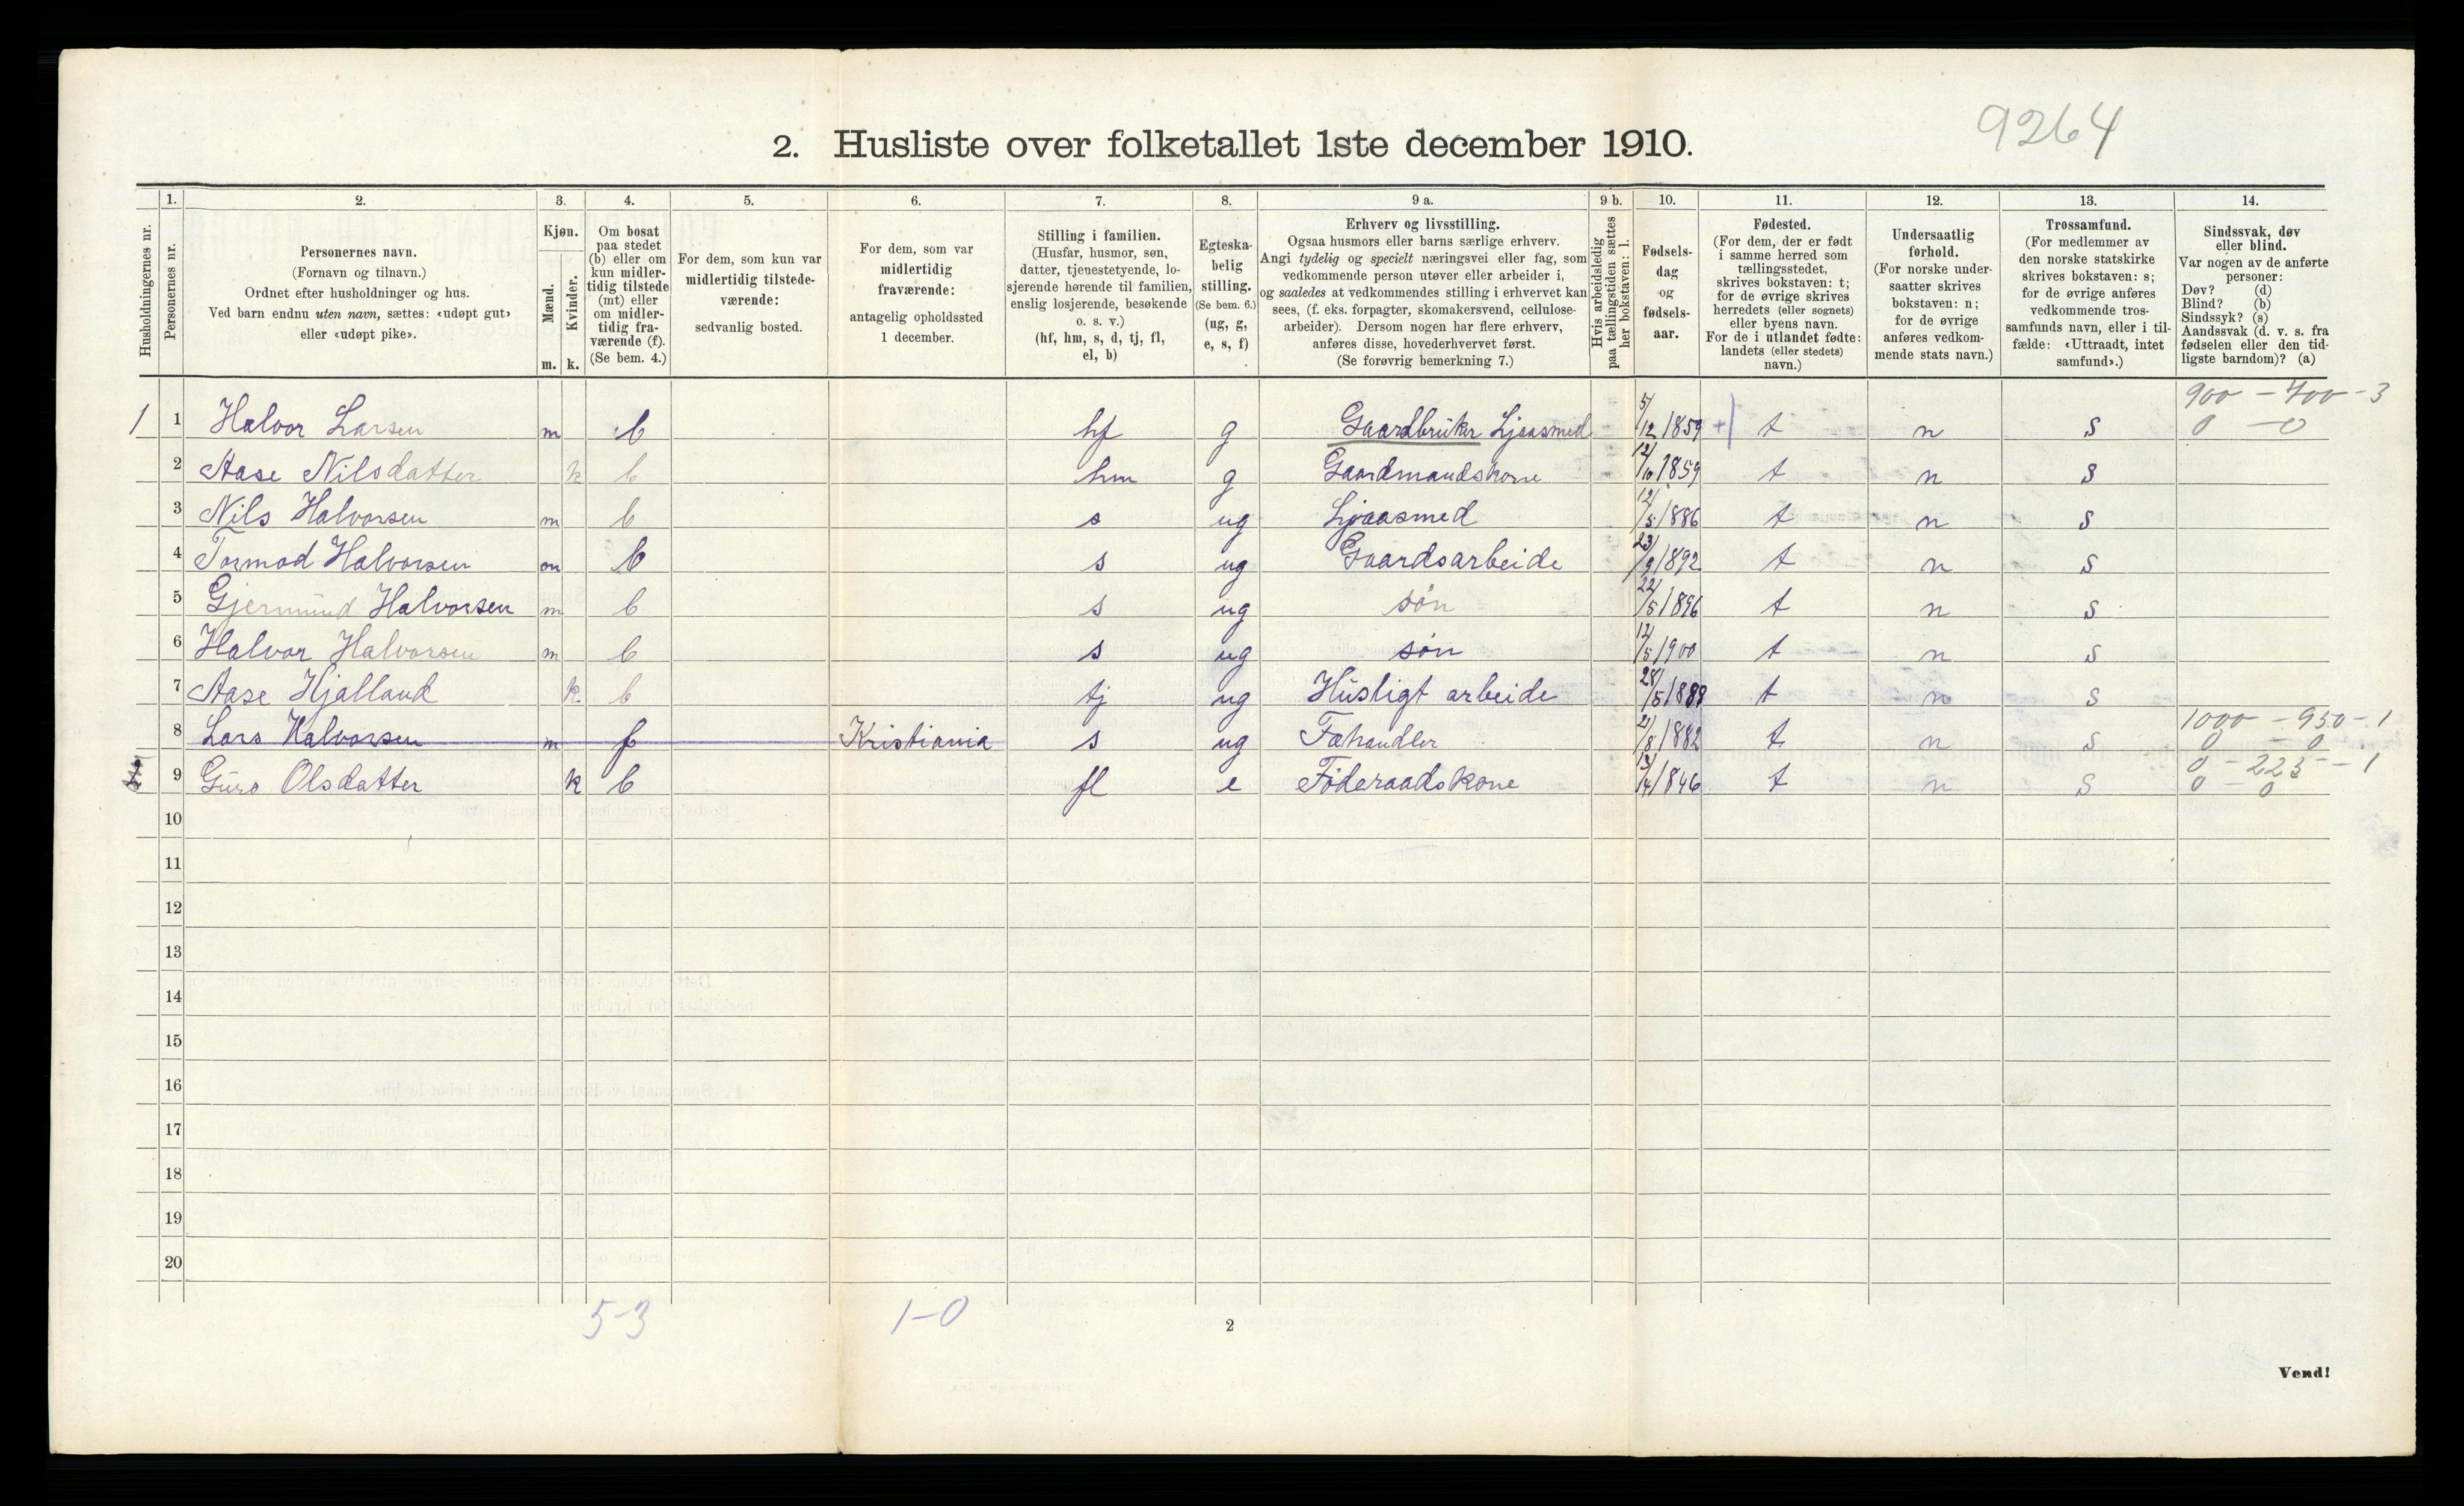 9264
2. Husliste over folketallet 1ste december 1910.
Husholdningernes nr.
1.
Personernes nr.
2.
Personernes navn.
(Fornavn og tilnavn.)
Ordnet efter husholdninger og hus.
Ved barn endnu uten navn, sættes: «udøpt gut»
eller «udøpt pike».
3.
Kjøn.
Mænd.
Kvinder.
m. k.
4.
Om bosat
paa stedet
(b) eller om
kun midler-
tidig tilstede
(mt) eller
om midler-
tidig fra-
værende (f).
(Se bem. 4.)
5.
For dem, som kun var
midlertidig tilstede-
værende:
sedvanlig bosted.
6.
For dem, som var
midlertidig
fraværende:
antagelig opholdssted
1 december.
7.
Stilling i familien.
(Husfar, husmor, søn,
datter, tjenestetyende, lo-
sjerende hørende til familien,
enslig losjerende, besøkende
o. s. v.)
(hf, hm, s, d, tj, fl,
el, b)
8.
Egteska-
belig
stilling.
(Se bem. 6.)
(ug, g,
e, s, f)
9 a.
Erhverv og livsstilling.
Ogsaa husmors eller barns særlige erhverv.
Angi tydelig og specielt næringsvei eller fag, som
vedkommende person utøver eller arbeider i,
og saaledes at vedkommendes stilling i erhvervet kan
sees, (f. eks. forpagter, skomakersvend, cellulose-
arbeider). Dersom nogen har flere erhverv,
anføres disse, hovederhvervet først.
(Se forøvrig bemerkning 7.)
9 b.
Hvis arbeidsledig
paa tællingstiden sættes
her bokstaven: l.
10.
Fødsels-
dag
og
fødsels-
aar.
11.
Fødested.
(For dem, der er født
i samme herred som
tællingsstedet,
skrives bokstaven: t;
for de øvrige skrives
herredets (eller sognets)
eller byens navn.
For de i utlandet fødte:
landets (eller stedets)
navn.)
12.
Undersaatlig
forhold.
(For norske under-
saatter skrives
bokstaven: n;
for de øvrige
anføres vedkom-
mende stats navn.)
13.
Trossamfund.
(For medlemmer av
den norske statskirke
skrives bokstaven: s;
for de øvrige anføres
vedkommende tros-
samfunds navn, eller i til-
fælde: «Uttraadt, intet
samfund».)
14.
Sindssvak, døv
eller blind.
Var nogen av de anførte
personer:
Døv? (d)
Blind? (b)
Sindssyk? (s)
Aandssvak (d. v. s. fra
fødselen eller den tid-
ligste barndom)? (a)
900 - 700 - 3
1 1 Halvor Larsen m b hf g Gaardbruker Ljaasmed 5/12 1859 + t n s 0 - 0
2 Aase Nilsdatter k b hm g Gaardmandskone 12/10 1859 t n s
3 Nils Halvorsen m b s ug Ljaasmed 12/5 1886 t n s
4 Tormod Halvorsen m b s ug Gaardsarbeide 23/9 1892 t n s
5 Gjermund Halvorsen m b s ug søn 22/5 1896 t n s
6 Halvor Halvorsen m b s ug søn 12/5 1900 t n s
7 Aase Hjalland k b tj ug Husligt arbeide 28/5 1888 t n s
1000 - 950 - 1
8 Lars Halvorsen m f Kristiania s ug Fæhandler 21/8 1882 t n s 0 - 0
0 - 223 - 1
9 Guro Olsdatter k b fl e Føderaadskone 13/4 1846 t n s 0 - 0
10
11
12
13
14
15
16
17
18
19
20
5-3 1-0
2
Vend!